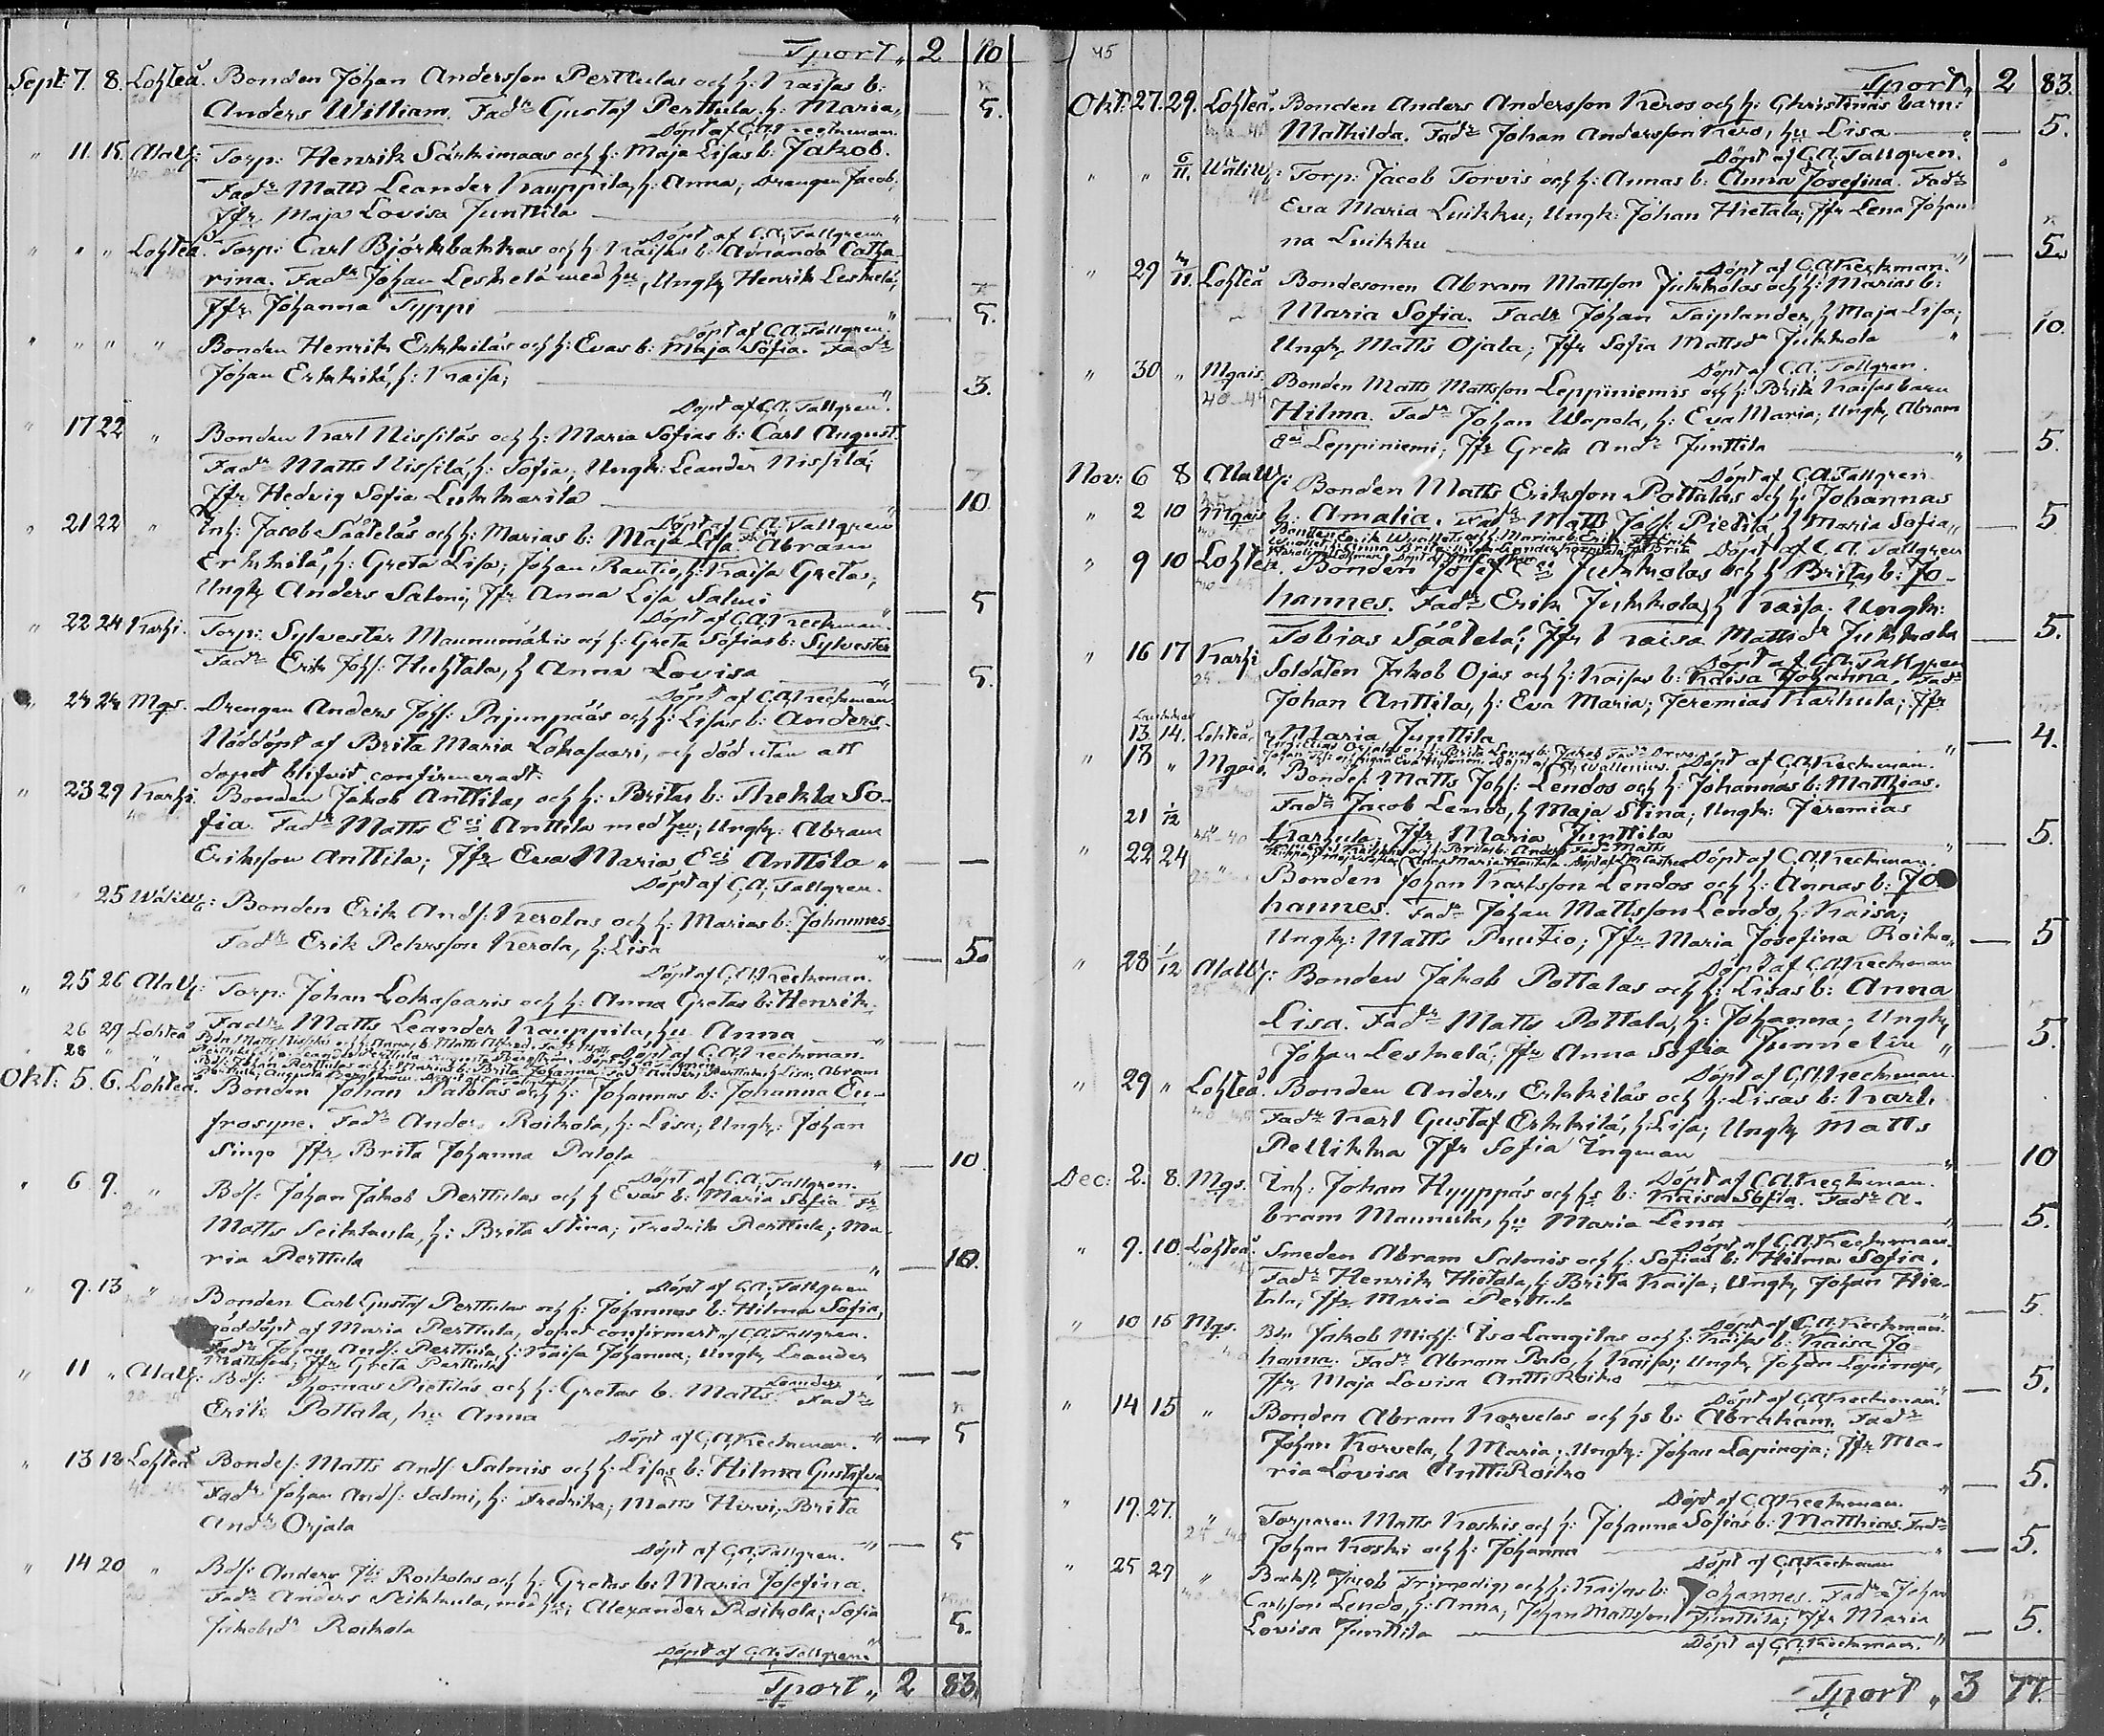 Tport „ 2 10
Sept: 7. 8. Lohteå. Bonden Johan Andersson Perttulas och h: Kaisas b:
Anders William. Fadr Gustaf Perttula, h: Maria „ — 5.
Döpt af C.A. Keckman.
„ 11. 15. Alaly: Torp: Henrik Särkimaas och h: Maja Lisas b: Jakob.
Fadr Matts Leander Kauppila, h: Anna; Drengen Jacob,
Jfr. Maja Lovisa Junttila — „ —
Döpt af C.A. Tallgren
„ „ „ Lohteå. Torp: Carl Björkbackas och h: Kaisas b: Amanda Catha
rina. Fadr Johan Leskelä med hu, Ungk, Henrik Leskelä,
Jfr. Johanna Typpi — „ — 5.
Döpt af C.A. Tallgren.
„ „ „ „ Bonden Henrik Erkkiläs och h: Evas b: Maja Sofia. Fadr
Johan Erkkilä, h: Kaisa; — 3.
Döpt af C.A. Tallgren.
„ 17 22 „ Bonden Karl Nissiläs och h: Maria Sofias b: Carl August.
Fadr Matts Nissilä, h: Sofia; Ungk: Leander Nissilä;
Jfr Hedvig Sofia Lukkarila — 10
Döpt af C.A. Tallgren
„ 21 22 „ Inh: Jacob Sääteläs och h: Marias b: Maja Lisa. Fadr Abram
Erkkilä, h: Greta Lisa; Johan Rautio, h: Kaisa Greta;
Ungk Anders Salmi, Jfr Anna Lisa Salmi — 5
Döpt af C.A. Keckman.
„ 22 24 Karhi. Torp: Sylvester Maunumäkis och h: Greta Sofias b: Sylvester
Fadr Erik Johs: Huhtala, h Anna Lovisa — 5.
Döpt af C.A. Keckman
„ 24 24 Mgs. Drengen Anders Johs: Pajunpääs och h: Lisas b: Anders.
Nöddöpt af Brita Maria Lokasaari, och död utan att
dopet blifvit confirmeradt.
„ 23 29 Karhi. Bonden Jakob Anttilas och h: Britas b: Thekla So-
fia. Fadr Matts Eri Anttila med hu; Ungk: Abram
Eriksson Anttila; Jfr Eva Maria Eri Anttila „ — —
Döpt af C.A. Tallgren.
„ 25 Wäliw: Bonden Erik Ands: Kerolas och h: Marias b: Johannes.
Fadr Erik Pehrsson Kerola, h: Lisa — 5.
Döpt af C.A. Keckman.
„ 25 26 Alaly: Torp: Johan Lokasaaris och h: Anna Gretas b: Henrik.
Fadr Matts Leander Kauppila, hu Anna —
Döpt af C.A. Keckman.
26 29 Lohteå
28 „ „
Okt: 5. 6. Lohteå. Bonden Johan Palolas och h: Johannas b: Johanna Eu-
frosyne. Fadr Anders Roikola, h: Lisa; Ungk: Johan
Singo Jfr Brita Johanna Palola — 10.
Döpt af C.A. Tallgren.
„ 6 9. „ Bds: Johan Jakob Perttulas och h Evas b: Maria Sofia. Fr
Matts Seikkula, h: Brita Stina; Fredrik Perttula; Ma-
ria Perttula — 10.
Döpt af C.A. Tallgren
„ 9. 13 „ Bonden Carl Gustaf Perttulas och h: Johannas b: Hilma Sofia,
nöddöpt af Maria Perttula, dopet confirmert af C.A. Tallgren.
Fadr Johan Ands: Perttula, h: Kaisa Johanna; Ungk, Leander
Mattsson; Jfr Greta Perttula — —
„ 11 „ Alaly: Bds: Thomas Pietiläs och h: Gretas b: Matts Leander. Fadr
Erik Pottala, hu Anna
Döpt af C.A. Keckman. „ — 5
„ 13 18 Lohteå Bondes: Matts Ands: Salmis och h: Lisas b: Hilma Gustafva
Fadr Johan Ands: Salmi, h: Fredrika; Matts Hirvi; Brita
Andr Orjala — 5
Döpt af C.A. Tallgren.
„ 14 20 „ Bds: Anders Roikolas och h: Gretas b: Maria Josefina.
Fadr Anders Seikkula, med hu; Alexander Roikola; Sofia
Jakobsdr Roikola — 5.
Döpt af C.A. Tallgren.
Tport „ 2 83.
45
Tport „ 2 83.
Okt: 27. 29. Lohteå. Bonden Anders Andersson Keros och h: Christinas barn:
Mathilda. Fadr Johan Andersson Kero, hu Lisa — 5.
Döpt af C.A. Tallgren.
„ „ 6/11. Wäliw: Torp: Jacob Torvis och h: Annas b: Anna Josefina. Fadr
Eva Maria Luikku; Ungk: Johan Hietala; Jfr Lena Johan
na Luikku — 5.
Döpt af C.A. Keckman.
„ 29 /11 Lohteå Bondesonen Abram Mattsson Jukkolas och h: Marias b:
Maria Sofia. Fadr Johan Taiplander, h Maja Lisa;
Ungk, Matts Ojala; Jfr Sofia Mattsdr Jukkola — 10.
Döpt af C.A. Tallgren.
„ 30 „ Mgais. Bonden Matts Mattsson Leppiniemis och h: Brita Kaisas barn
Hilma. Fadr Johan Wapola, h: Eva Maria; Ungk, Abram
Leppiniemi; Jfr Greta Andr Junttila — 5.
Döpt af C.A. Tallgren
Nov: 6 8 Alaly: Bonden Matts Eriksson Pottalas och h: Johannas
„ 2 10 Mgais b: Amalia. Fadr Matts Johs: Pietilä, h Maria Sofia „ 5
Döpt af C.A. Tallgren
„ 9 10 Lohteå. Bonden Josef Jukkolas och h Britas b: Jo-
hannes. Fadr Erik Jukkola, h Kaisa. Ungk:
Tobias Säätelä; Jfr Kaisa Mattsdr Jukkola — 5.
Döpt af C.A. Tallgren
„ 16 17 Karhi Soldaten Jakob Ojas och h: Kaisas b: Kaisa Johanna. Fadr
Johan Anttila, h: Eva Maria; Jeremias Karhula; Jfr
13. 14. Lohteå. Maria Junttila — 4.
Döpt af C.A. Keckman.
„ 18 „ Mgais. Bondes: Matts Johs: Lendos och h: Johannas b: Matthias.
21 1/12 Fadr Jacob Lendo, h Maja Stina; Ungk: Jeremias
Karhula; Jfr Maria Junttila — 5.
Döpt af C.A. Keckman.
„ 22 24 „ Bonden Johan Karlsson Lendos och h: Annas b: Jo
hannes. Fadr Johan Mattsson Lendo, h: Kaisa;
Ungk: Matts Puutio; Jfr Maria Josefina Roiko. — 5
Döpt af C.A. Keckman
„ 28 1/12 Alaly: Bonden Jakob Pottalas och h: Lisas b: Anna
Lisa. Fadr Matts Pottala, h: Johanna; Ungk,
Johan Leskelä; Jfr Anna Sofia Junnelin „ — 5.
Döpt af C.A. Keckman.
„ 29 „ Lohteå. Bonden Anders Erkkiläs och h: Lisas b: Karl.
Fadr Karl Gustaf Erkkilä, h: Lisa; Ungk, Matts
Pellikka Jfr Sofia Ingman — 10
Döpt af C.A. Keckman.
Dec: 2. 8. Mgs. Inh: Johan Hyyppäs och hs b: Kaisa Sofia. Fadr A-
bram Maunula, hu Maria Lena — 5.
Döpt af C.A. Keckman.
„ 9. 10. Lohteå. Smeden Abram Salmis och h: Sofias b: Hilma Sofia.
Fadr Henrik Hietala, h: Brita Kaisa; Ungk, Johan Hie-
tala; Jfr. Maria Perttula — 5.
Döpt af C.A. Keckman.
„ 10 15 Mgs. Bdn Jakob Michs: Iso Langilas och h: Kaisas b: Kaisa Jo
hanna. Fadr Abram Palo, h Kaisa; Ungk, Johan Lapinoja,
Jfr. Maja Lovisa AnttiRoiko — 5.
Döpt af C.A. Keckman.
„ 14 15 „ Bonden Abram Korvelas och hs b: Abraham. Fadr
Johan Korvela, h Maria; Ungk: Johan Lapinoja; Jfr Ma-
ria Lovisa AnttiRoiko — 5.
Döpt af C.A. Keckman.
„ 19. 27. „ Torparen Matts Koskis och h: Johanna Sofias b: Matthias. Fadr
Johan Koski och h: Johanna — 5.
Döpt af C.A. Keckman
„ 25 27 „ Jacob och h: Kaisas b: Johannes. Fadr Johan
Carlsson Lendo, h: Anna, Johan Mattsson Junttila; Jfr Maria
Lovisa Junttila — 5.
Döpt af C.A. Keckman.
Tport „ 3 77.